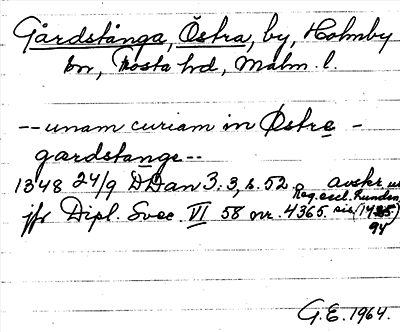 Gårdstånga, Östra, by, Holmby
sn, Frosta hd, Malm. l.
-- unam curiam in Østre -
gardstange --
1348 24/9 DDan 3:3, s. 52. avskr.
Reg. eccl. Lunden.
jfr Dipl. Svec. VI 58 nr. 4365. (1435)
94
G.E. 1964.